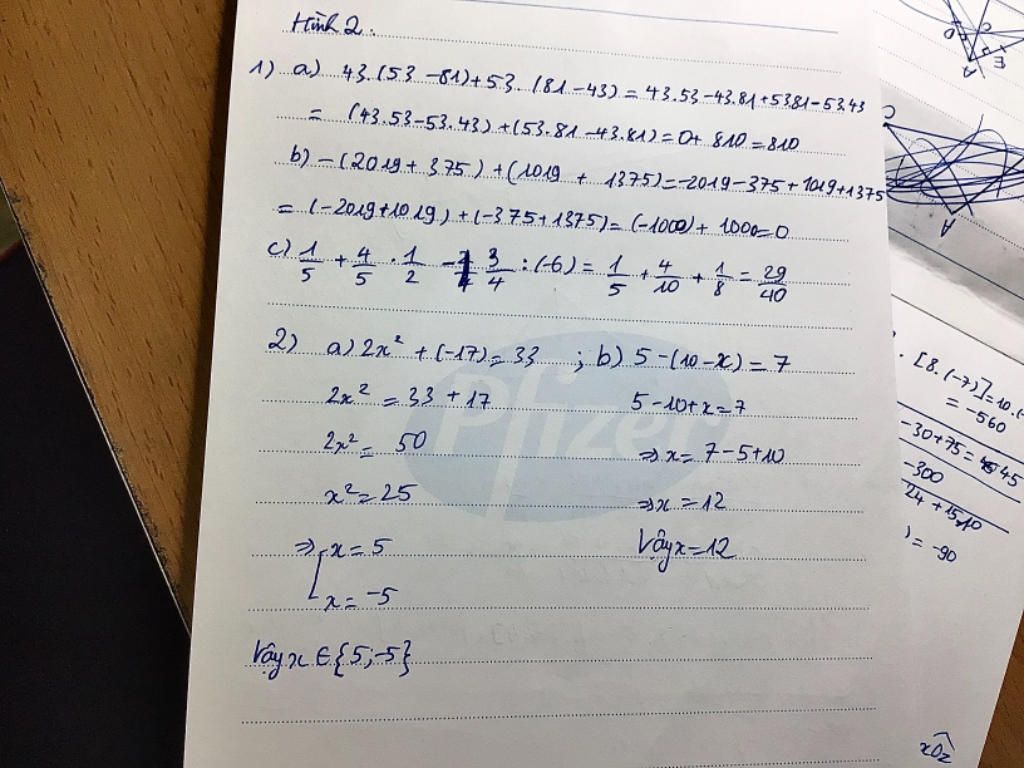 Hình 2.
1) a) 43.(53 - 81) + 53. (81 - 43) = 43.53 - 43.81 + 53.81 - 53.43
= (43.53 - 53.43) + (53.81 - 43.81) = 0 + 810 = 810
b) -(2019 + 375) + (1019 + 1375) = -2019 - 375 + 1019 + 1375
= (-2019 + 1019) + (-375 + 1375) = (-1000) + 1000 = 0
c) 1/5 + 4/5 . 1/2 - 3/4 : (-6) = 1/5 + 4/10 + 1/8 = 29/40
2) a) 2x² + (-17) = 33 ; b) 5 - (10 - x) = 7
2x² = 33 + 17 5 - 10 + x = 7
2x² = 50 ⇒ x = 7 - 5 + 10
x² = 25 ⇒ x = 12
⇒ [ x = 5 Vậy x = 12
x = -5
Vậy x ∈ {5; -5}
Pfizer
O
C
E
A
C
A
. [8.(-7)] = 10.(-
= -560
-30 + 75 = 45
-300
24 + 15,10
) = -90
xOz